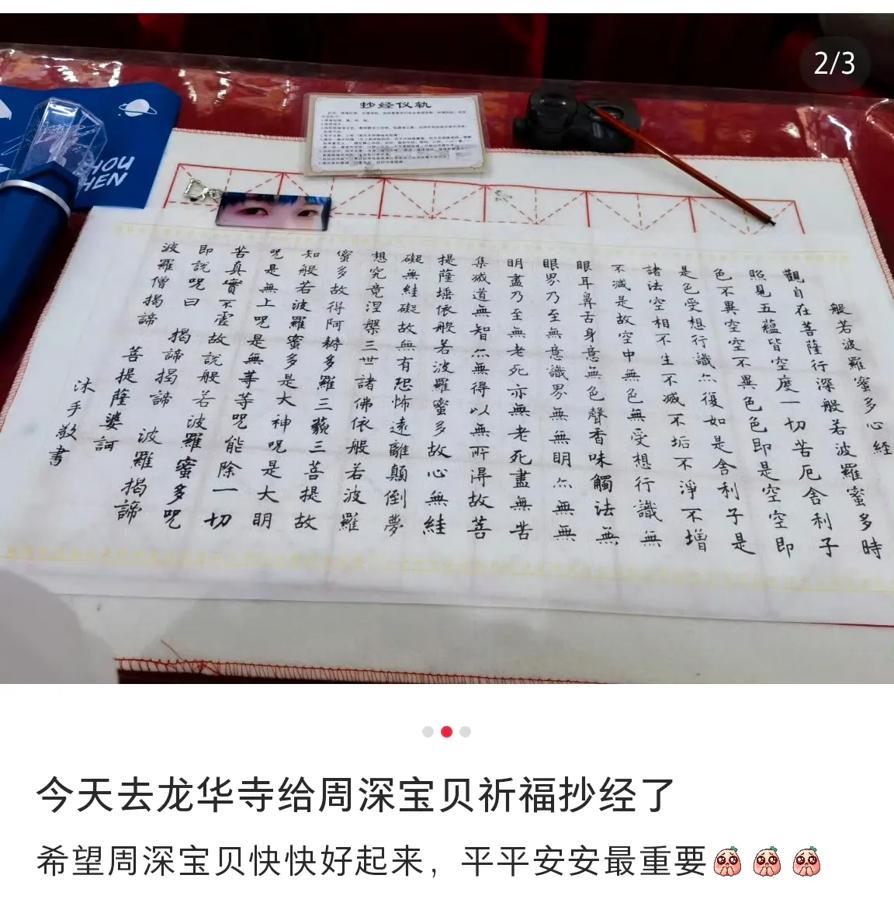 2/3
抄经仪轨
HOU
HEN
般若波羅蜜多心経
觀自在菩薩行深般若波羅蜜多時
照見五蘊皆空度一切苦厄舍利子
色不異空空不異色色即是空空即
是色受想行識亦復如是舍利子是
諸法空相不生不滅不垢不淨不增
不減是故空中無色無受想行識無
眼耳鼻舌身意無色聲香味觸法無
眼界乃至無意識界無無明亦無無
明盡乃至無老死亦無老死盡無苦
集滅道無智亦無得以無所得故菩
提薩埵依般若波羅蜜多故心無絓
礙無絓礙故無有恐怖遠離顛倒夢
想究竟涅槃三世諸佛依般若波羅
蜜多故得阿耨多羅三藐三菩提故
知般若波羅蜜多是大神呪是大明
呪是無上呪是無等等呪能除一切
苦真實不虛故說般若波羅蜜多呪
即說呪曰 揭諦揭諦 波羅揭諦
波羅僧揭諦 菩提薩婆訶
沐手敬書
今天去龙华寺给周深宝贝祈福抄经了
希望周深宝贝快快好起来，平平安安最重要